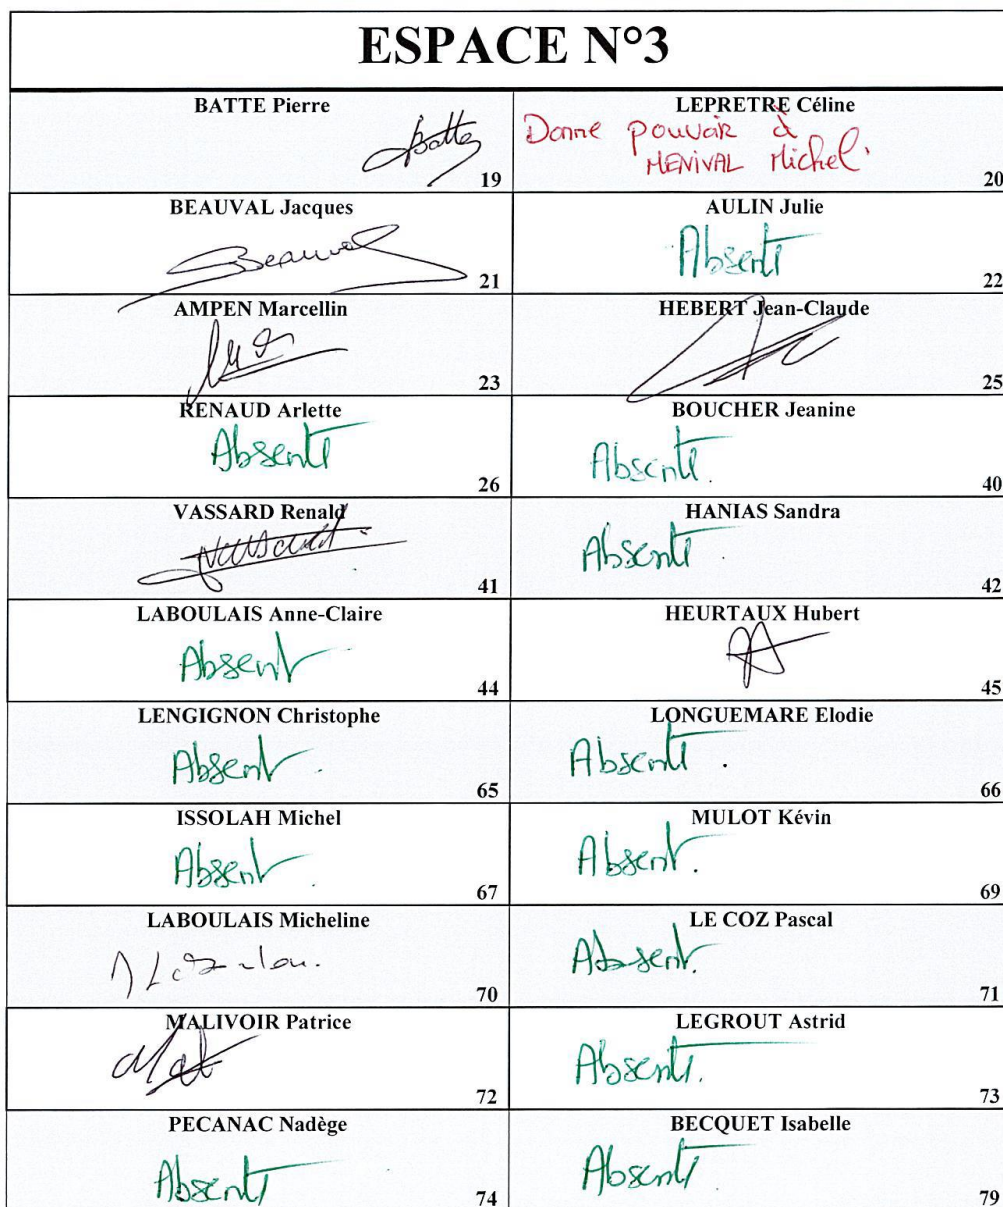 ESPACE N°3
BATTE Pierre
Batte
19
LEPRETRE Céline
Donne pouvoir à
MENIVAL Michel.
20
BEAUVAL Jacques
Beauval
21
AULIN Julie
Absente
22
AMPEN Marcellin
23
HEBERT Jean-Claude
25
RENAUD Arlette
Absente
26
BOUCHER Jeanine
Absente.
40
VASSARD Renald
41
HANIAS Sandra
Absente
42
LABOULAIS Anne-Claire
Absent
44
HEURTAUX Hubert
45
LENGIGNON Christophe
Absent.
65
LONGUEMARE Elodie
Absente.
66
ISSOLAH Michel
Absent.
67
MULOT Kévin
Absent.
69
LABOULAIS Micheline
70
LE COZ Pascal
Absent.
71
MALIVOIR Patrice
72
LEGROUT Astrid
Absente.
73
PECANAC Nadège
Absente
74
BECQUET Isabelle
Absente
79